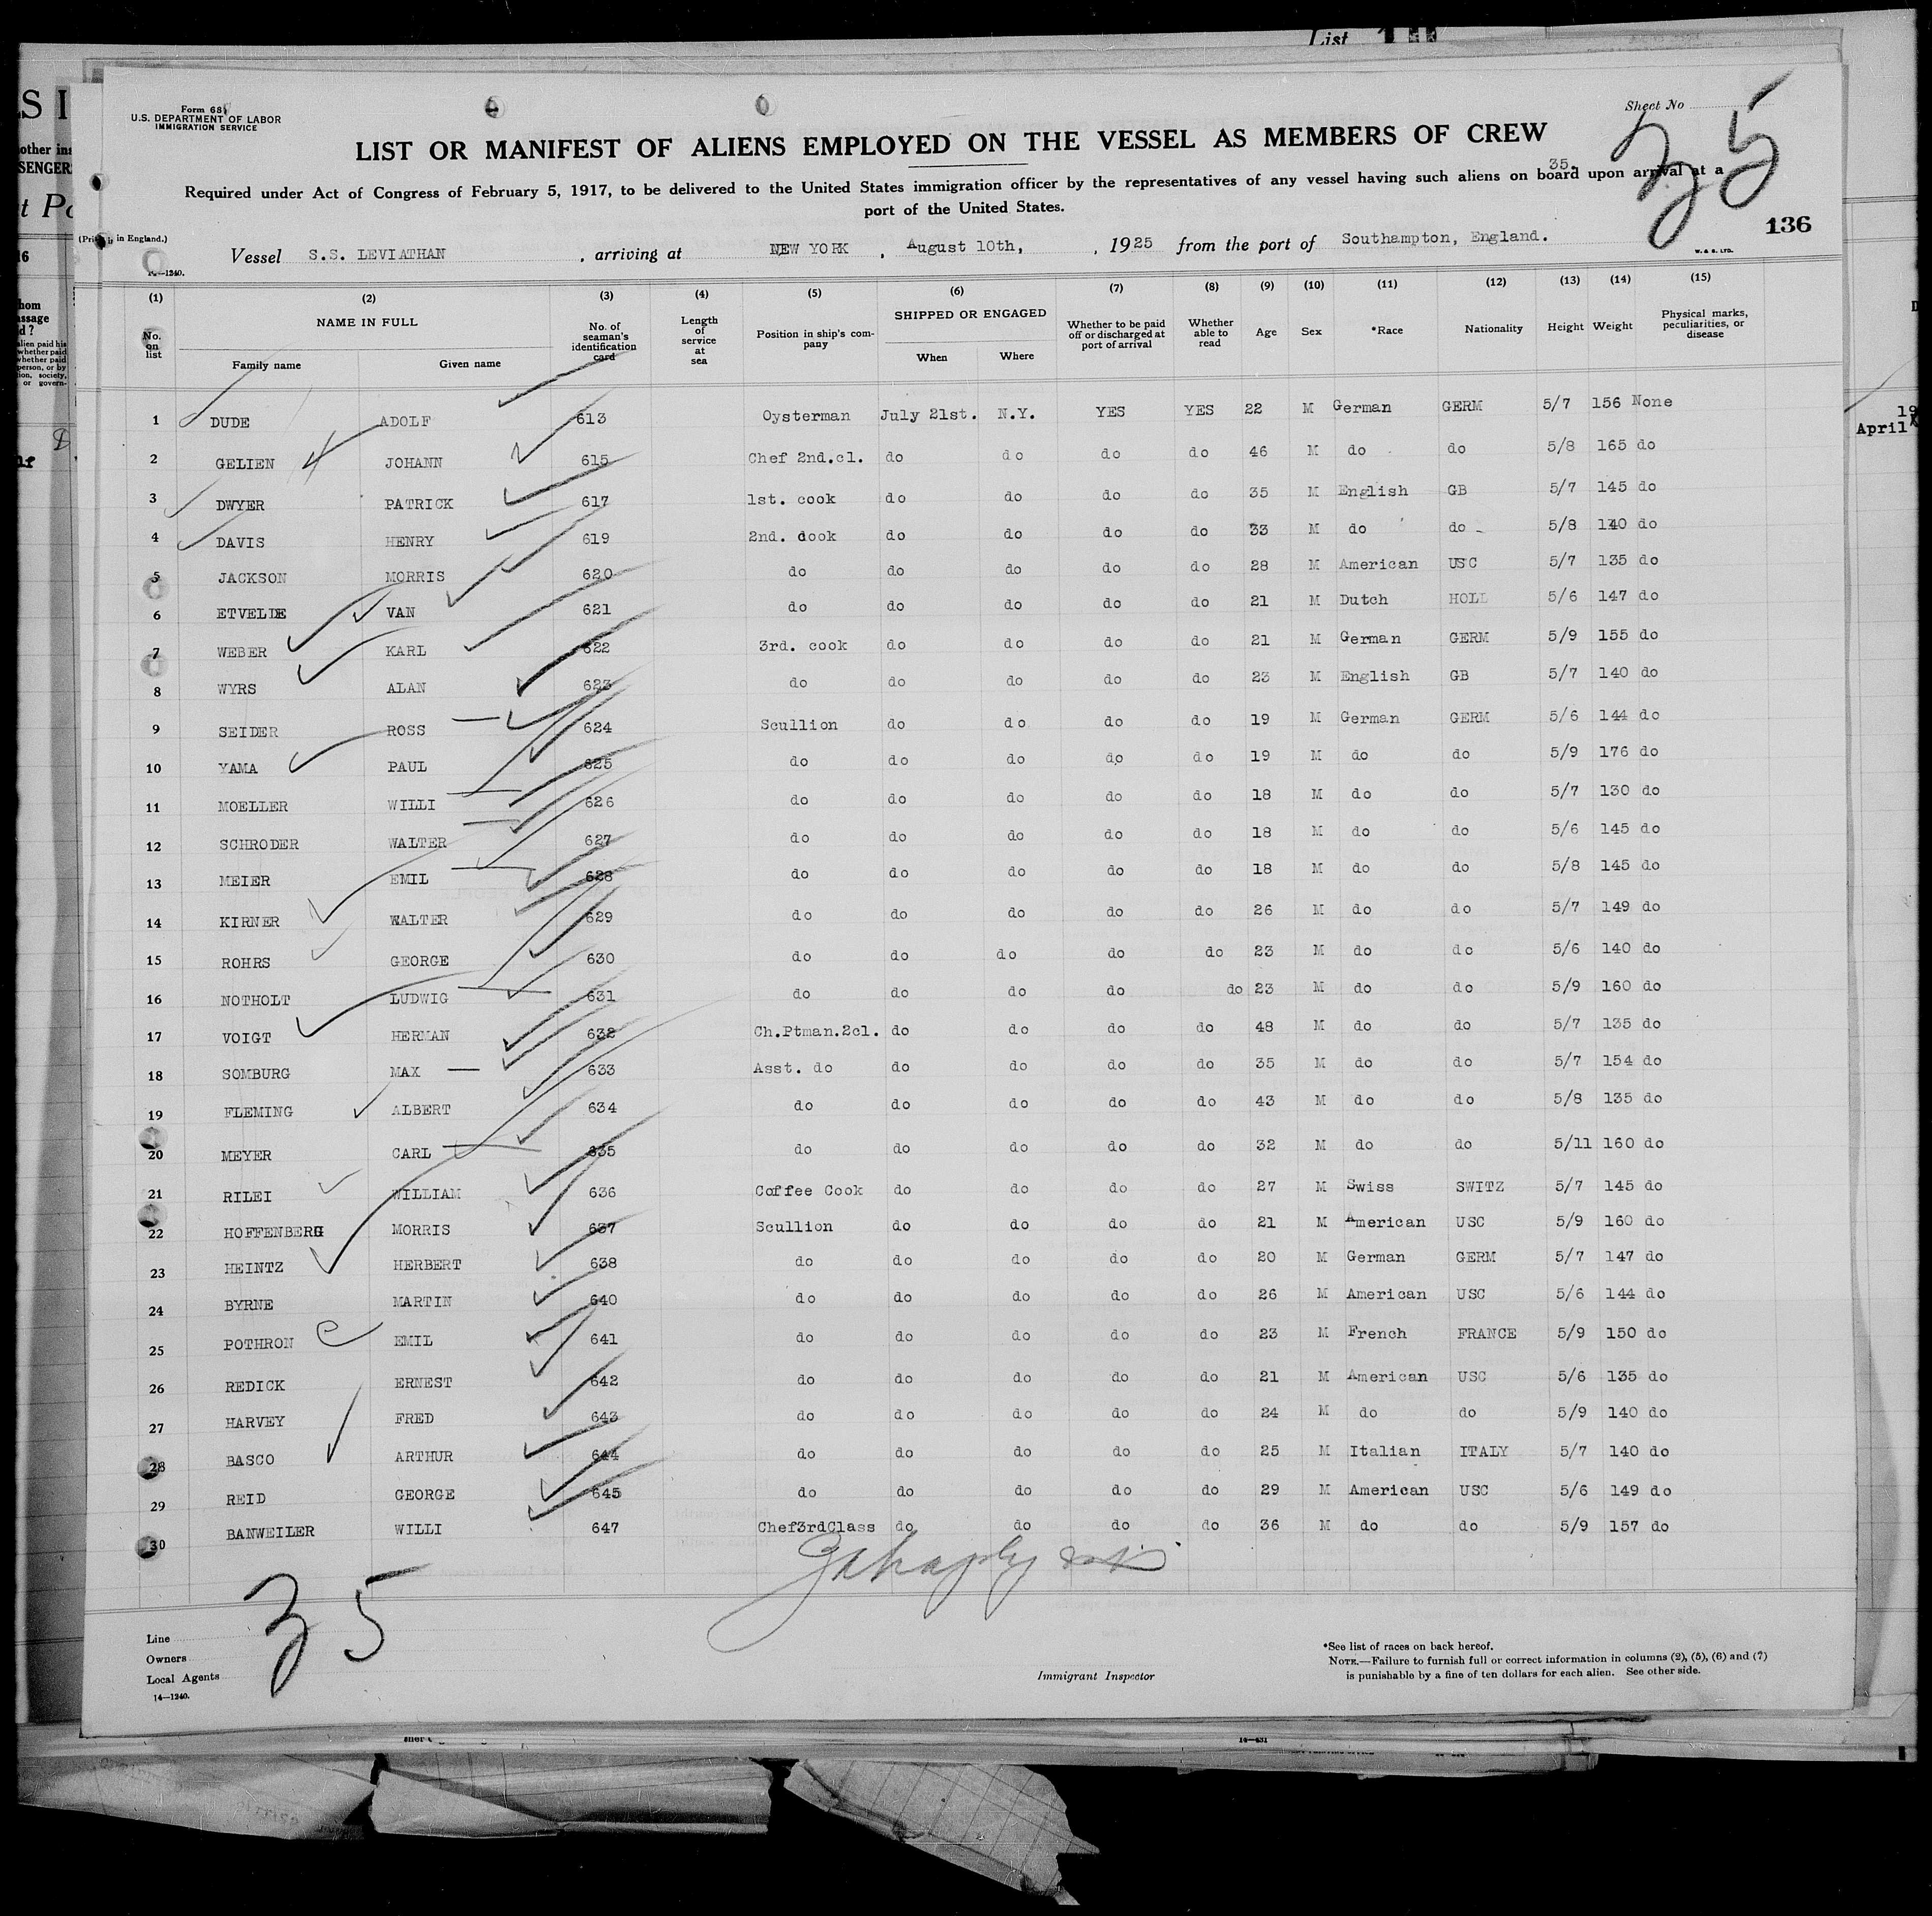 List
Form 68
U.S. DEPARTMENT OF LABOR
IMMIGRATION SERVICE
Sheet No
35
LIST OR MANIFEST OF ALIENS EMPLOYED ON THE VESSEL AS MEMBERS OF CREW
35.
Required under Act of Congress of February 5, 1917, to be delivered to the United States immigration officer by the representatives of any vessel having such aliens on board upon arrival at a
port of the United States.
136
in England.)
Vessel S.S. LEVIATHAN , arriving at NEW YORK , August 10th, , 1925 from the port of Southampton, England.
14—1240.
W. & S. LTD.
(1) (2) (3) (4) (5) (6) (7) (8) (9) (10) (11) (12) (13) (14) (15)
No. on list NAME IN FULL Family name Given name No. of seaman's identification card Length of service at sea Position in ship's company SHIPPED OR ENGAGED When Where Whether to be paid off or discharged at port of arrival Whether able to read Age Sex *Race Nationality Height Weight Physical marks, peculiarities, or disease
1 DUDE ADOLF 613 Oysterman July 21st. N.Y. YES YES 22 M German GERM 5/7 156 None
2 GELIEN JOHANN 615 Chef 2nd.cl. do do do do 46 M do do 5/8 165 do
3 DWYER PATRICK 617 1st. cook do do do do 35 M English GB 5/7 145 do
4 DAVIS HENRY 619 2nd. dook do do do do 33 M do do 5/8 140 do
5 JACKSON MORRIS 620 do do do do do 28 M American USC 5/7 135 do
6 ETVELDE VAN 621 do do do do do 21 M Dutch HOLL 5/6 147 do
7 WEBER KARL 622 3rd. cook do do do do 21 M German GERM 5/9 155 do
8 WYRS ALAN 623 do do do do do 23 M English GB 5/7 140 do
9 SEIDER ROSS 624 Scullion do do do do 19 M German GERM 5/6 144 do
10 YAMA PAUL 625 do do do do do 19 M do do 5/9 176 do
11 MOELLER WILLI 626 do do do do do 18 M do do 5/7 130 do
12 SCHRODER WALTER 627 do do do do do 18 M do do 5/6 145 do
13 MEIER EMIL 628 do do do do do 18 M do do 5/8 145 do
14 KIRNER WALTER 629 do do do do do 26 M do do 5/7 149 do
15 ROHRS GEORGE 630 do do do do do 23 M do do 5/6 140 do
16 NOTHOLT LUDWIG 631 do do do do do 23 M do do 5/9 160 do
17 VOIGT HERMAN 632 Ch.Ptman.2cl. do do do do 48 M do do 5/7 135 do
18 SOMBURG MAX 633 Asst. do do do do do 35 M do do 5/7 154 do
19 FLEMING ALBERT 634 do do do do do 43 M do do 5/8 135 do
20 MEYER CARL 635 do do do do do 32 M do do 5/11 160 do
21 RILEI WILLIAM 636 Coffee Cook do do do do 27 M Swiss SWITZ 5/7 145 do
22 HOFFENBERG MORRIS 637 Scullion do do do do 21 M American USC 5/9 160 do
23 HEINTZ HERBERT 638 do do do do do 20 M German GERM 5/7 147 do
24 BYRNE MARTIN 640 do do do do do 26 M American USC 5/6 144 do
25 POTHRON EMIL 641 do do do do do 23 M French FRANCE 5/9 150 do
26 REDICK ERNEST 642 do do do do do 21 M American USC 5/6 135 do
27 HARVEY FRED 643 do do do do do 24 M do do 5/9 140 do
28 BASCO ARTHUR 644 do do do do do 25 M Italian ITALY 5/7 140 do
29 REID GEORGE 645 do do do do do 29 M American USC 5/6 149 do
30 BANWEILER WILLI 647 Chef3rdClass do do do do 36 M do do 5/9 157 do
35
Line
Owners
Local Agents
14—1240.
Immigrant Inspector
*See list of races on back hereof.
NOTE.—Failure to furnish full or correct information in columns (2), (5), (6) and (7)
is punishable by a fine of ten dollars for each alien. See other side.
April
14—431